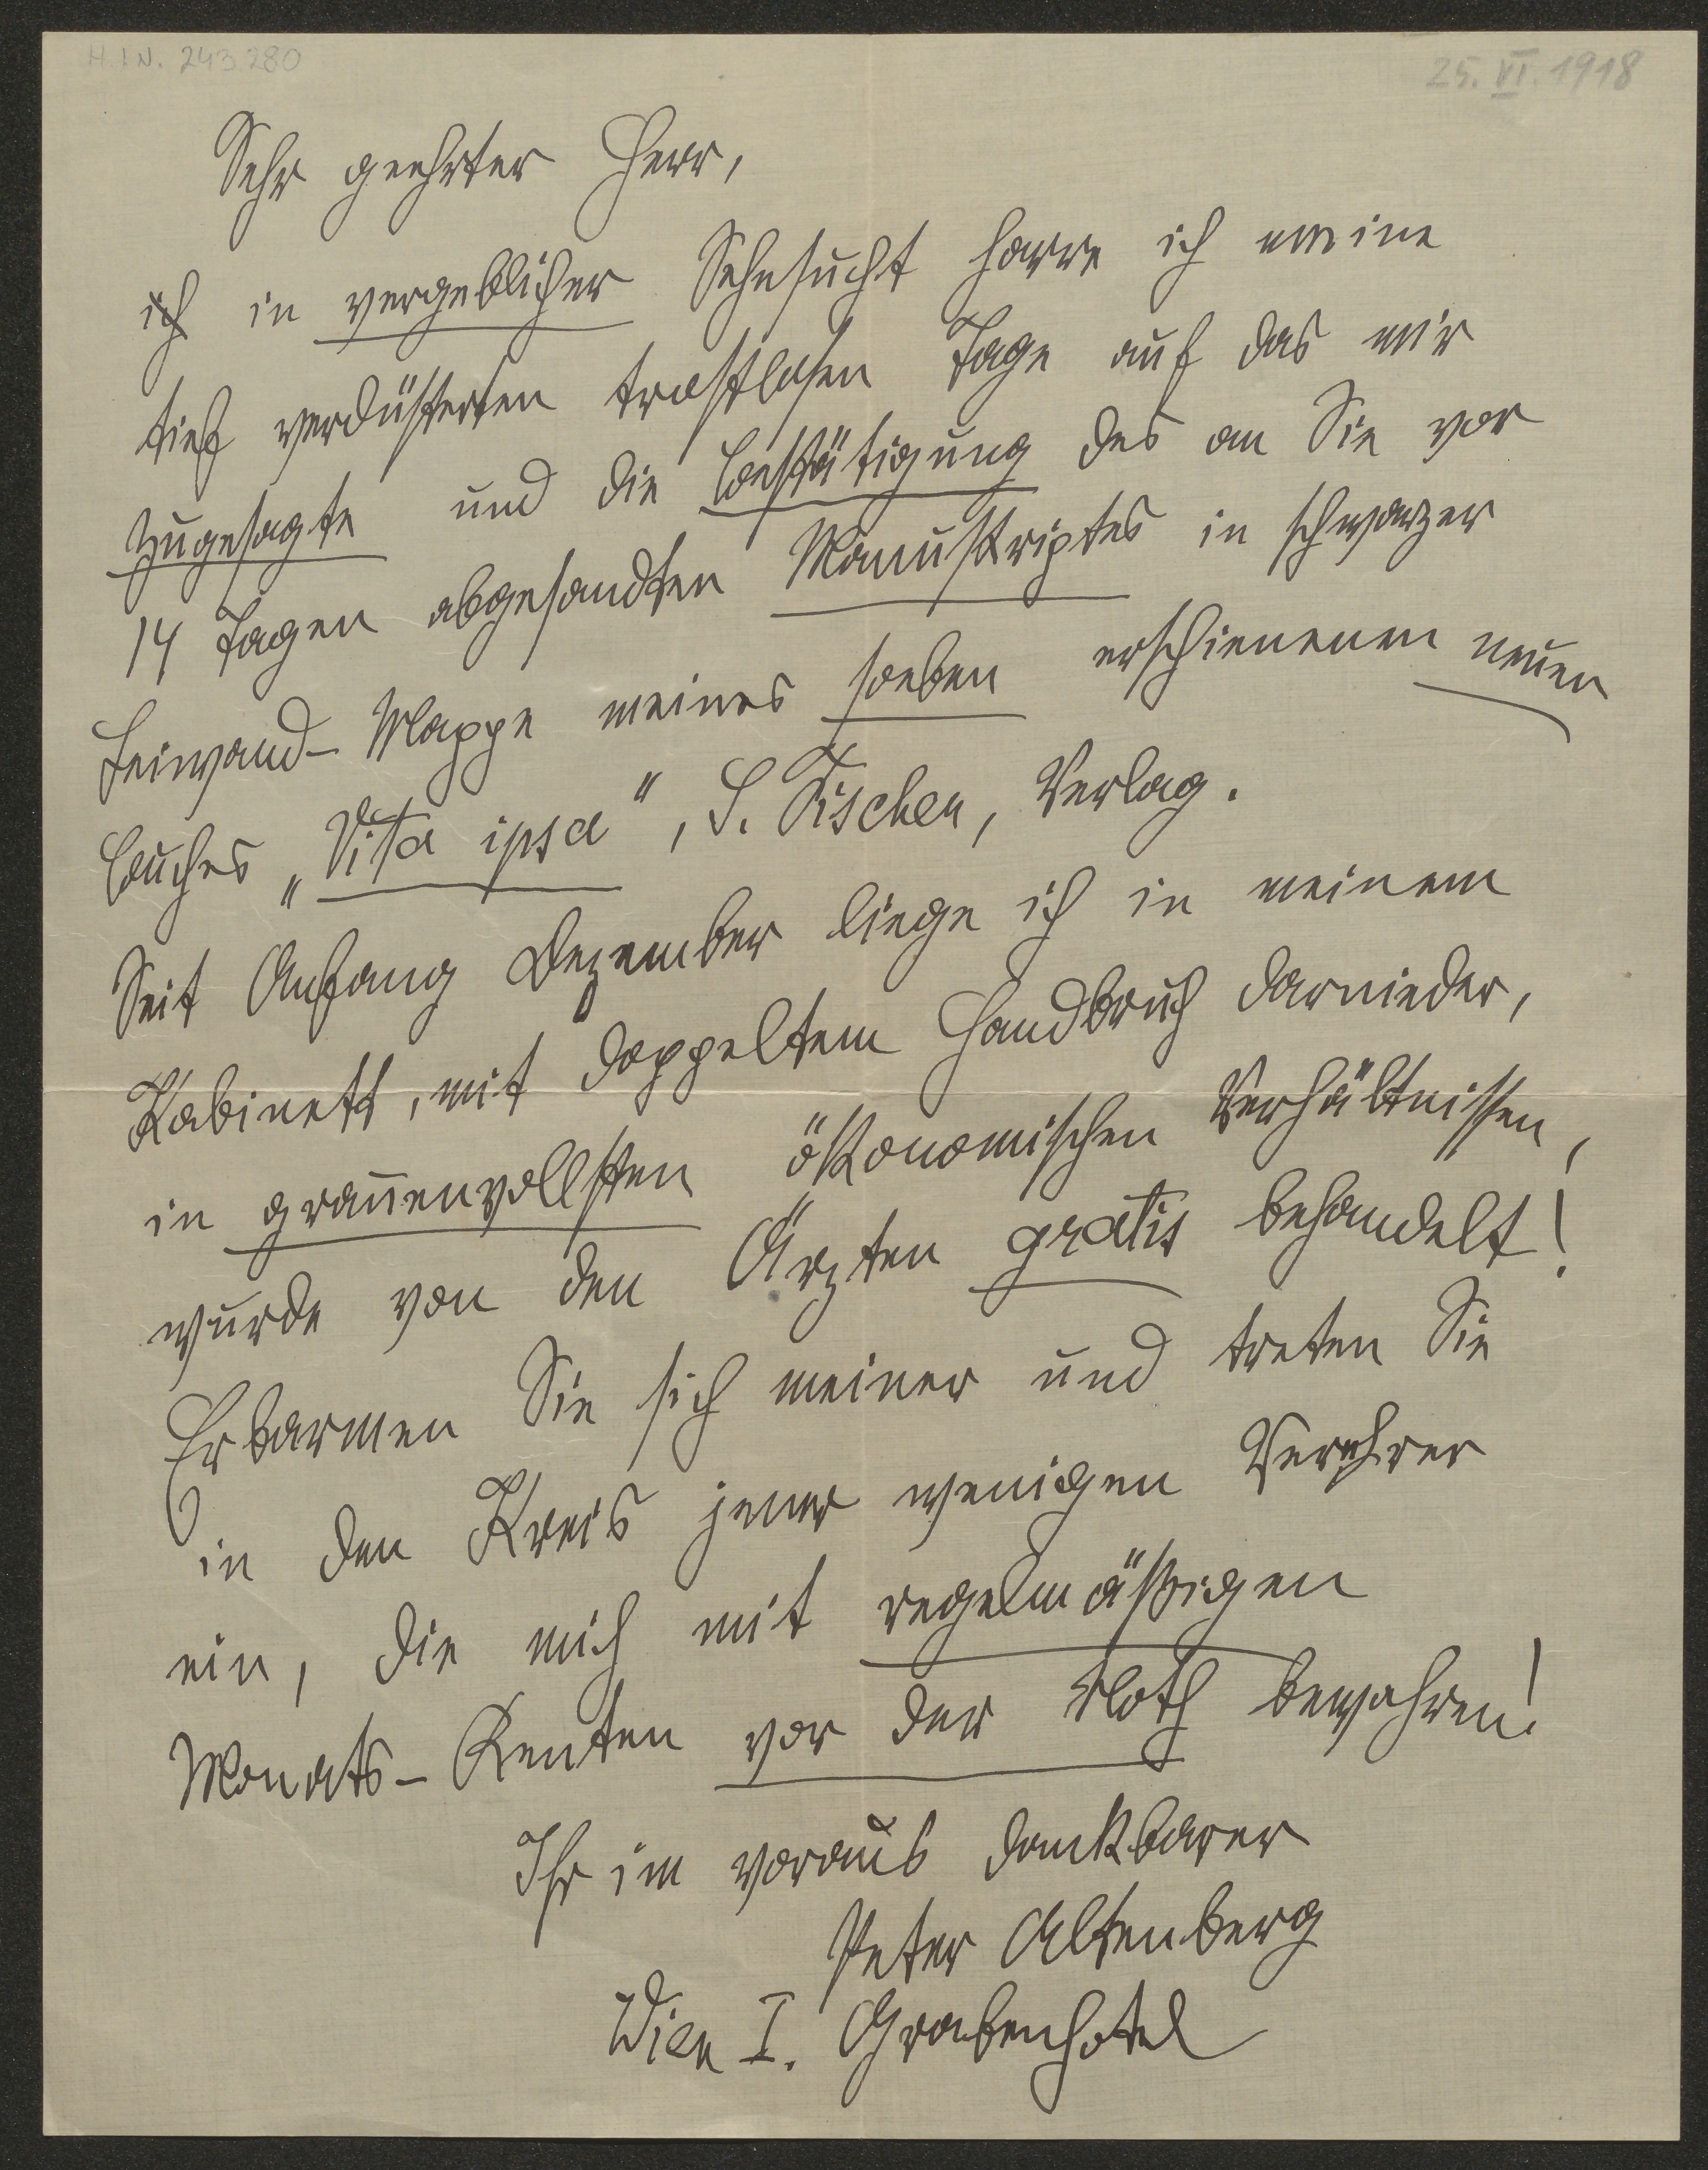 H.I.N. 243.280
25. VI. 1918
Sehr geehrter Herr,
ich in vergeblicher Sehnsucht harre ich meine
tief verdüsterten trostlosen Tage auf das mir
Zugesagte und die Bestätigung des an Sie vor
14 Tagen abgesandten Manuskriptes in schwarzer
Leinwand-Mappe meines soeben erschienenen neuen
Buches „Vita ipsa“, S. Fischer, Verlag.
Seit Anfang Dezember liege ich in meinem
Kabinett, mit doppeltem Handbruch darnieder,
in grauenvollsten ökonomischen Verhältnissen,
wurde von den Ärzten gratis behandelt!
Erbarmen Sie sich meiner und treten Sie
in den Kreis jener wenigen Verehrer
ein, die mich mit regelmäßigen
Monats-Renten vor der Noth bewahren!
Ihr im voraus dankbarer
Peter Altenberg
Wien I. Grabenhotel